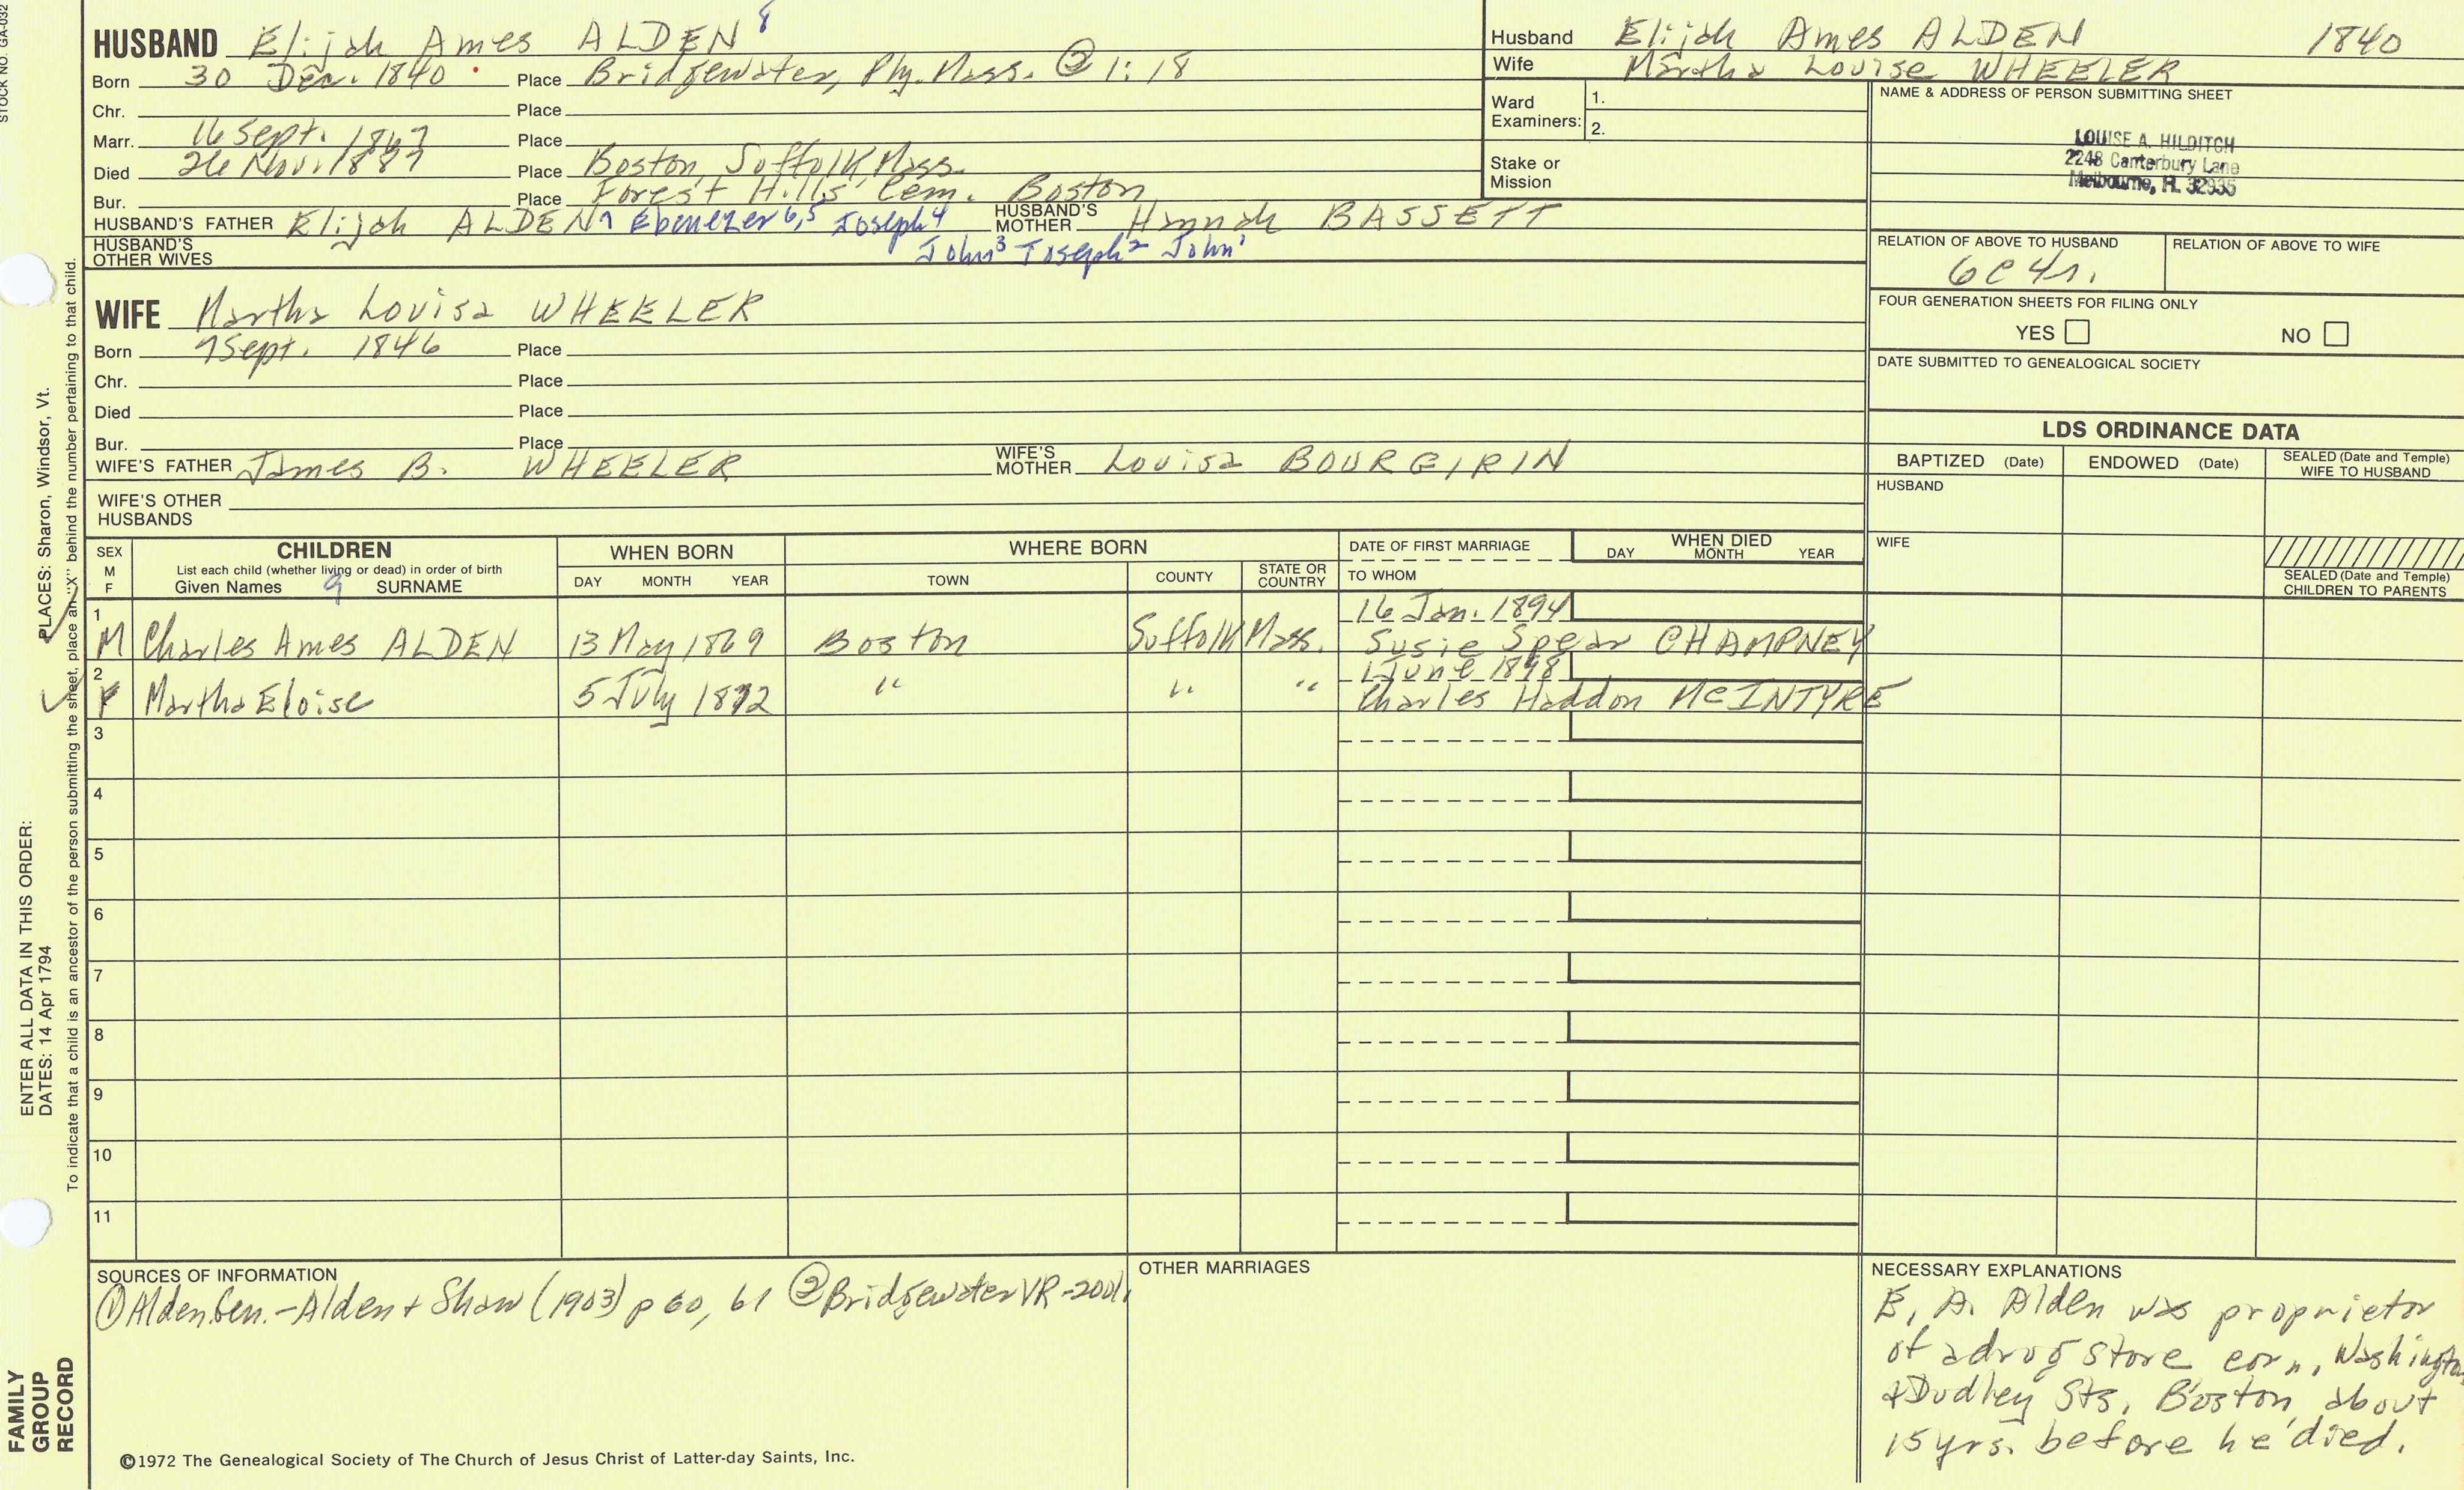 STOCK NO. GA-032
HUSBAND Elijah Ames ALDEN 8
Born 30 Dec. 1840 Place Bridgewater, Ply. Mass. @ 1:18
Chr. Place
Marr. 16 Sept. 1867 Place
Died 26 Nov. 1887 Place Boston, Suffolk, Mass.
Bur. Place Forest Hills Cem. Boston
HUSBAND'S FATHER Elijah ALDEN 7 Ebenezer 6,5 Joseph 4 HUSBAND'S MOTHER Hannah BASSETT
HUSBAND'S OTHER WIVES John 3 Joseph 2 John 1
WIFE Martha Louisa WHEELER
Born 7 Sept. 1846 Place
Chr. Place
Died Place
Bur. Place
WIFE'S FATHER James B. WHEELER WIFE'S MOTHER Louisa BOURGIRIN
WIFE'S OTHER HUSBANDS
Husband Elijah Ames ALDEN 1840
Wife Martha Louise WHEELER
Ward Examiners: 1.
2.
Stake or Mission
NAME & ADDRESS OF PERSON SUBMITTING SHEET
LOUISE A. HILDITCH
2248 Canterbury Lane
Melbourne, Fl. 32935
RELATION OF ABOVE TO HUSBAND RELATION OF ABOVE TO WIFE
6C4r.
FOUR GENERATION SHEETS FOR FILING ONLY
YES NO
DATE SUBMITTED TO GENEALOGICAL SOCIETY
LDS ORDINANCE DATA
BAPTIZED (Date) ENDOWED (Date) SEALED (Date and Temple) WIFE TO HUSBAND
HUSBAND
WIFE
SEALED (Date and Temple) CHILDREN TO PARENTS
SEX M F CHILDREN WHEN BORN WHERE BORN DATE OF FIRST MARRIAGE WHEN DIED
List each child (whether living or dead) in order of birth
Given Names 9 SURNAME DAY MONTH YEAR TOWN COUNTY STATE OR COUNTRY TO WHOM DAY MONTH YEAR
1 16 Jan. 1894
M Charles Ames ALDEN 13 May 1869 Boston Suffolk Mass. Susie Spear CHAMPNEY
2 1 June 1898
F Martha Eloise 5 July 1872 " " " Charles Haddon McINTYRE
3
4
5
6
7
8
9
10
11
SOURCES OF INFORMATION
① Alden Gen. - Alden + Shaw (1903) p 60, 61 ② Bridgewater VR-2001,
OTHER MARRIAGES
NECESSARY EXPLANATIONS
E. A. Alden was proprietor
of a drug store corn, Washington
& Dudley Sts, Boston, about
15 yrs. before he died.
©1972 The Genealogical Society of The Church of Jesus Christ of Latter-day Saints, Inc.
ENTER ALL DATA IN THIS ORDER:
DATES: 14 Apr 1794 PLACES: Sharon, Windsor, Vt.
To indicate that a child is an ancestor of the person submitting the sheet, place an "X" behind the number pertaining to that child.
FAMILY
GROUP
RECORD